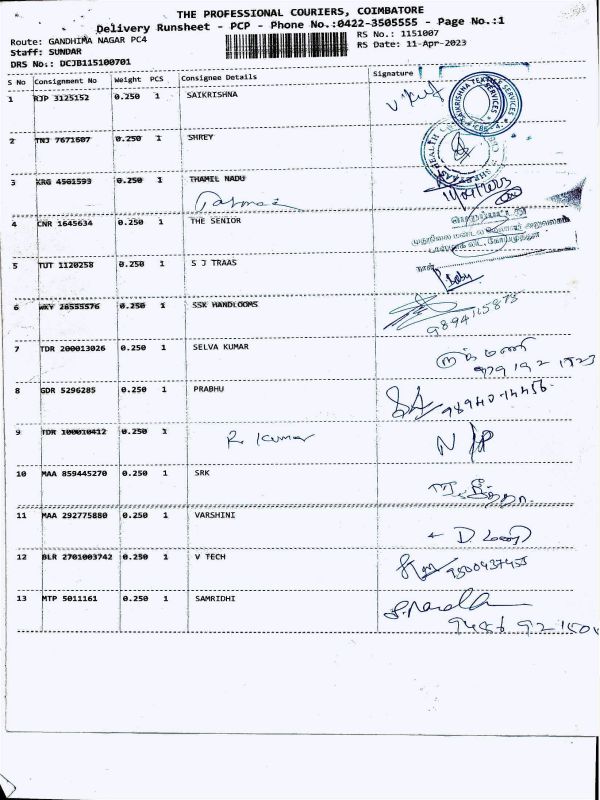 THE PROFESSIONAL COURIERS, COIMBATORE
Delivery Runsheet - PCP - Phone No.:0422-3505555 - Page No.:1
Route: GANDHIMA NAGAR PC4
RS No.: 1151007
Staff: SUNDAR
RS Date: 11-Apr-2023
DRS No.: DCJB115100701
S No Consignment No Weight PCS Consignee Details Signature
1 RJP 3125152 0.250 1 SAIKRISHNA
SAIKRISHNA TEXTILE SERVICES
2 TNJ 7671607 0.250 1 SHREY
3 KRG 4501593 0.250 1 THAMIL NADU
11/04/2023
4 CNR 1645634 0.250 1 THE SENIOR
5 TUT 1120258 0.250 1 S J TRAAS
Baby
6 WKY 28555576 0.250 1 SSK HANDLOOMS
9894125875
7 TDR 200013026 0.250 1 SELVA KUMAR
8 GDR 5296285 0.250 1 PRABHU
98940-14456
9 TDR 100010412 0.250 1 R. Kumar
10 MAA 859445270 0.250 1 SRK
11 MAA 292775880 0.250 1 VARSHINI
12 BLR 2701003742 0.250 1 V TECH
9500437455
13 MTP 5011161 0.250 1 SAMRIDHI